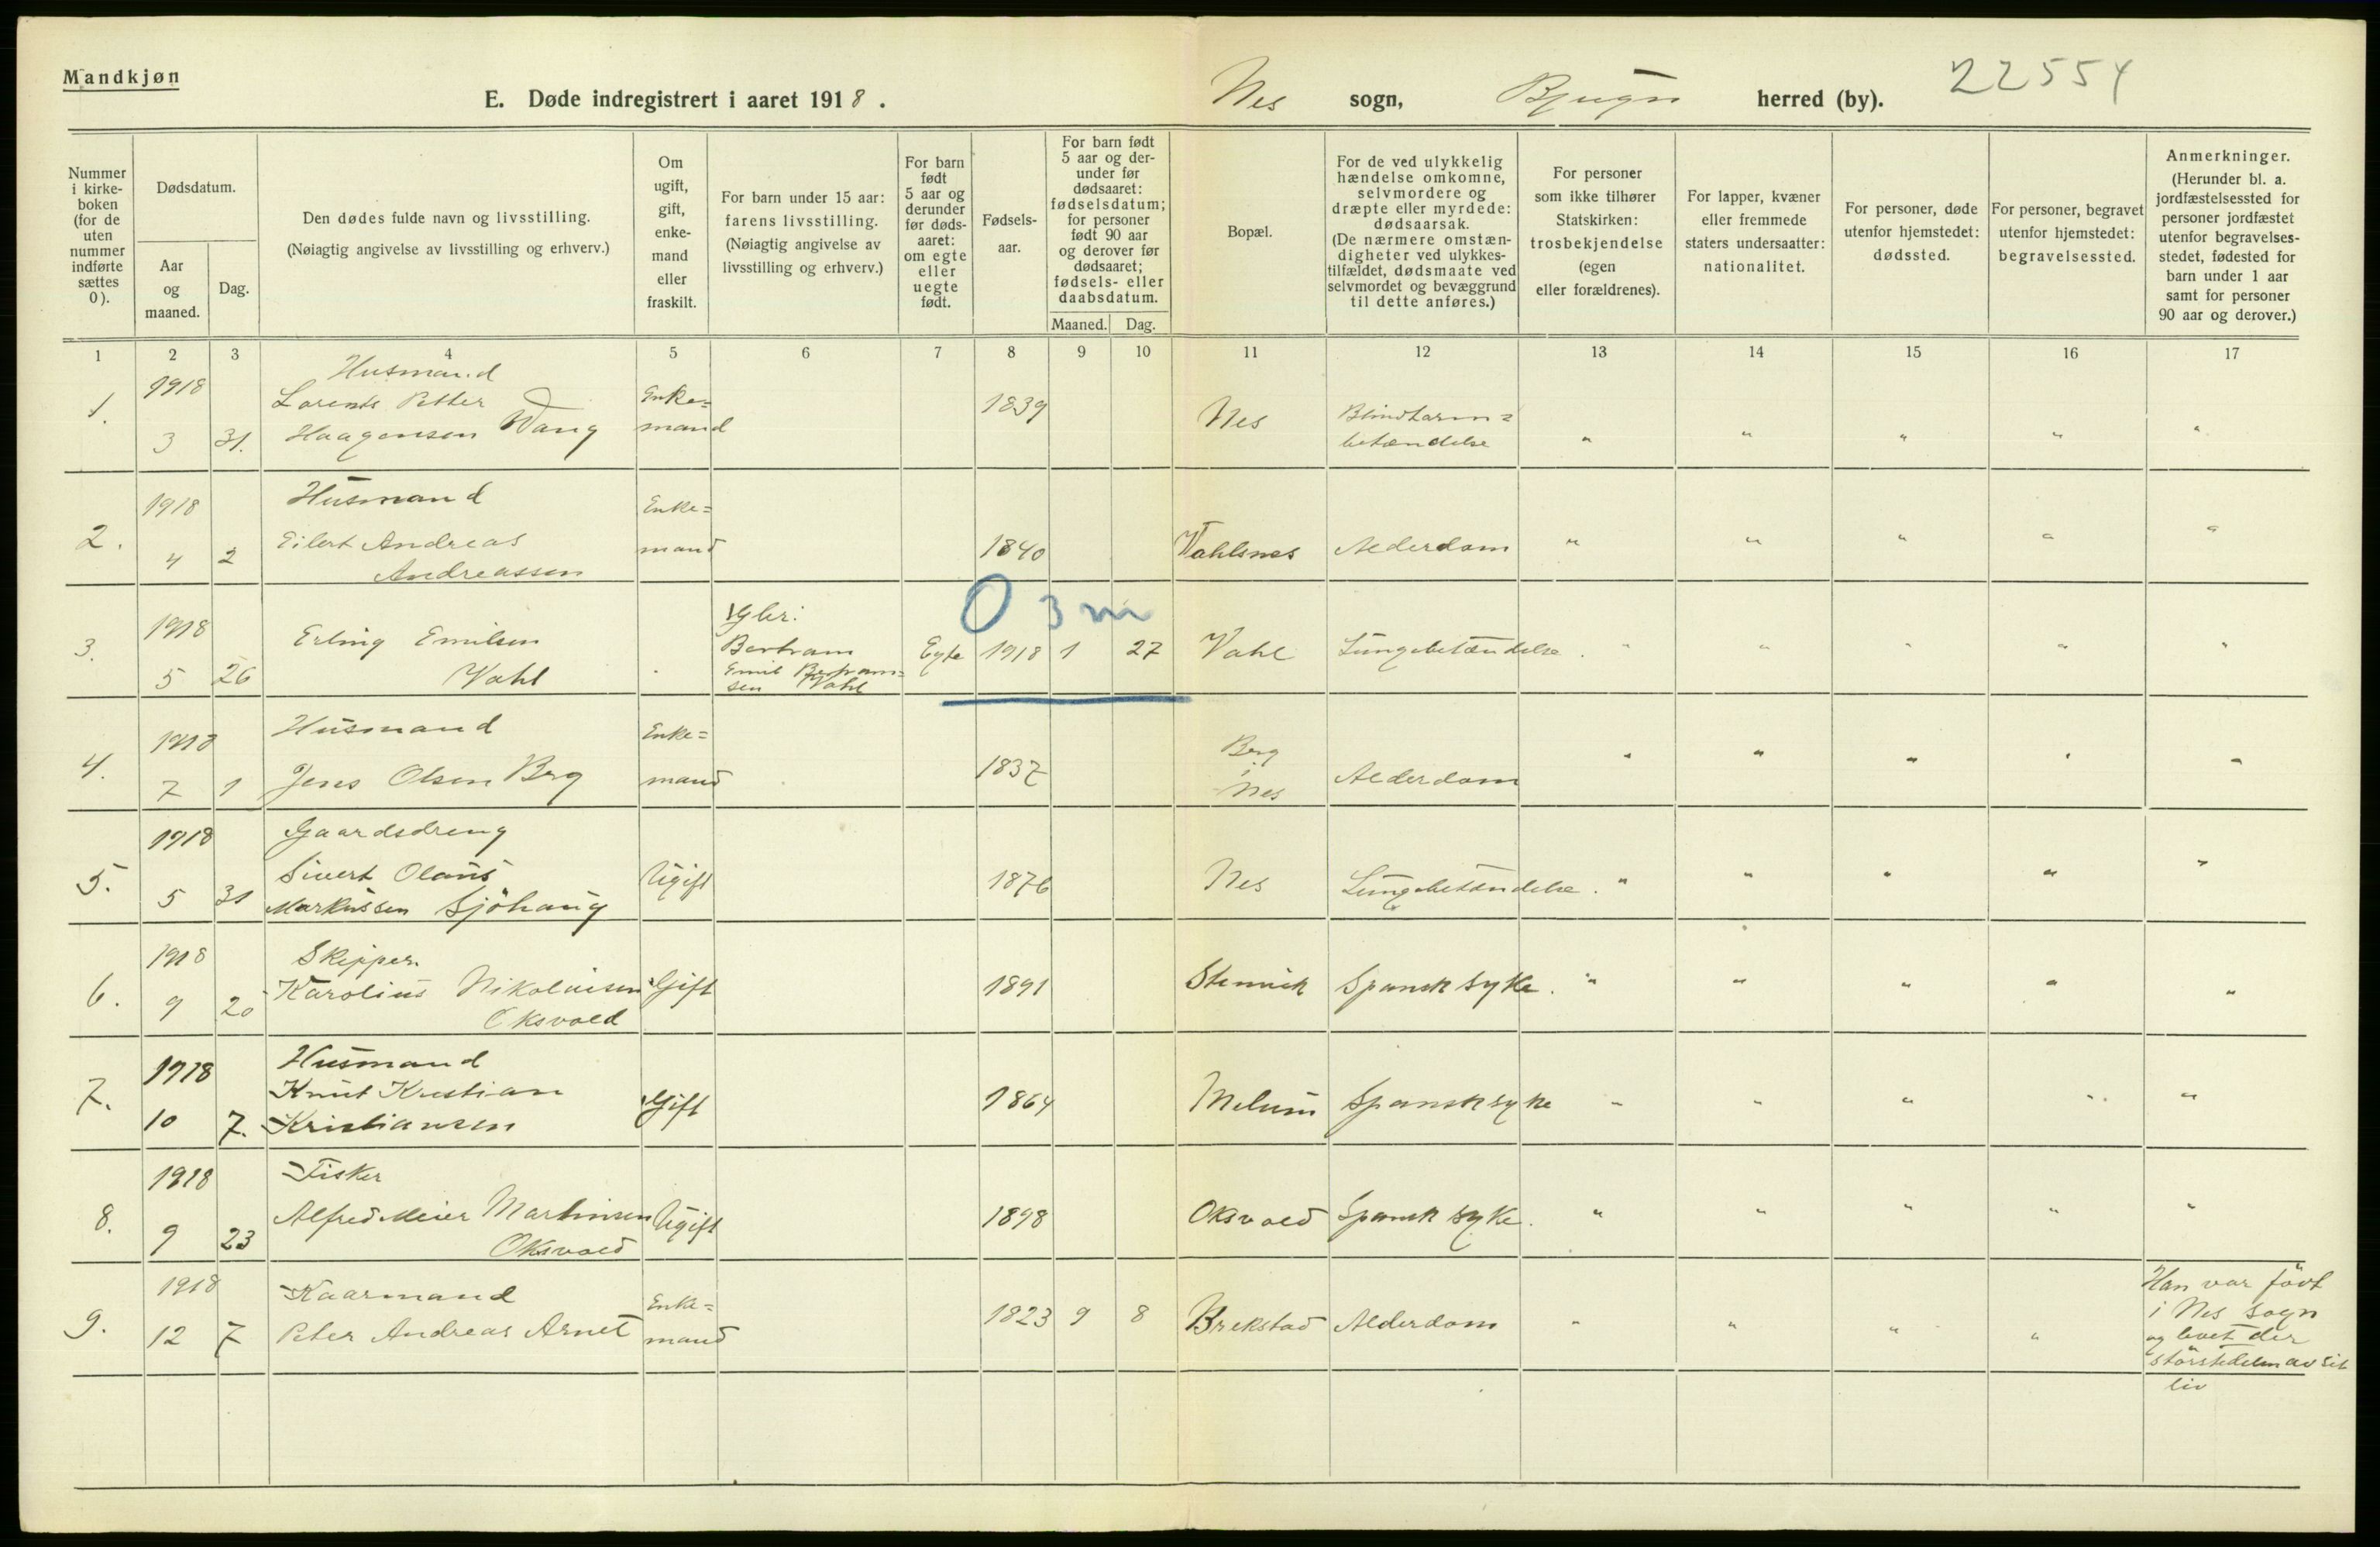 Mandkjøn
E. Døde indregistrert i aaret 1918.
Nes sogn, Bjugn herred (by).
22554
Nummer i kirkeboken (for de uten nummer indførte sættes 0).
Dødsdatum.
Aar og maaned.
Dag.
Den dødes fulde navn og livsstilling.
(Nøiagtig angivelse av livsstilling og erhverv.)
Om ugift, gift, enkemand eller fraskilt.
For barn under 15 aar: farens livsstilling.
(Nøiagtig angivelse av livsstilling og erhverv.)
For barn født 5 aar og derunder før dødsaaret: om egte eller uegte født.
Fødselsaar.
For barn født 5 aar og derunder før dødsaaret: fødselsdatum; for personer født 90 aar og derover før dødsaaret; fødsels- eller daabsdatum.
Maaned. Dag.
Bopæl.
For de ved ulykkelig hændelse omkomne, selvmordere og dræpte eller myrdede: dødsaarsak.
(De nærmere omstændigheter ved ulykkestilfældet, dødsmaate ved selvmordet og bevæggrund til dette anføres.)
For personer som ikke tilhører Statskirken: trosbekjendelse (egen eller forældrenes).
For lapper, kvæner eller fremmede staters undersaatter: nationalitet.
For personer, døde utenfor hjemstedet: dødssted.
For personer, begravet utenfor hjemstedet: begravelsessted.
Anmerkninger.
(Herunder bl. a. jordfæstelsessted for personer jordfæstet utenfor begravelsesstedet, fødested for barn under 1 aar samt for personer 90 aar og derover.)
1 2 3 4 5 6 7 8 9 10 11 12 13 14 15 16 17
1. 1918 3 31. Husmand Lorents Petter Haagensen Wang Enke=mand 1839 Nes Blindtarm=betændelse " " " " "
2. 1918 4 2 Husmand Eilert Andreas Andreassen Enke=mand 1840 Vahlsnes Alderdom " " " " "
0 3 m
3. 1918 5 26 Erling Emilsen Vahl Gbr: Bertram Emil Bertram=sen Vahl Egte 1918 1 27 Vahl Lungebetændelse. " " " " "
4. 1918 7 1 Husmand Jens Olsen Berg Enke=mand 1837 Berg i Nes Alderdom " " " " "
5. 1918 5 31 Gaardsdreng Sivert Olaus Markussen Sjöhaug Ugift 1876 Nes Lungebetændelse. " " " " "
6. 1918 9 20 Skipper. Karolius Nikolaisen Oksvold Gift 1891 Stenvik Spansk syke. " " " " "
7. 1918 10 7. Husmand Knut Kristian Kristiansen Gift 1864 Melum Spansk syke " " " " "
8. 1918 9 23 Fisker Alfred Meier Martinsen Oksvold Ugift 1898 Oksvold Spansk syke. " " " " "
9. 1918 12 7 Kaarmand Peter Andreas Arnet Enke=mand 1823 9 8 Brekstad Alderdom " " " " Han var födt i Nes sogn og levet der störstedelen av sit liv